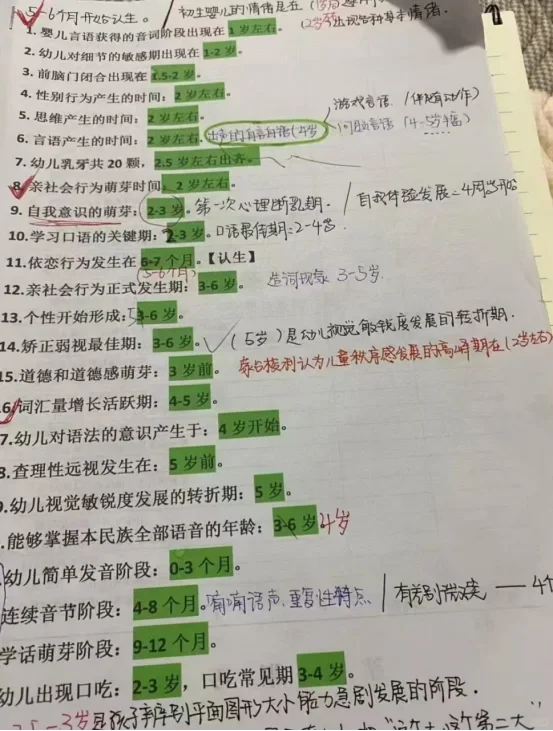 5-6个月开始认生。 初生婴儿的情绪是在
1. 婴儿言语获得的音词阶段出现在 1 岁左右。
2. 幼儿对细节的敏感期出现在 1-2 岁。
3. 前脑门闭合出现在 1.5-2 岁。
4. 性别行为产生的时间：2 岁左右。 游戏言语（伴随动作）
5. 思维产生的时间：2 岁左右。
6. 言语产生的时间：2 岁左右。 问题言语（4-5岁
7. 幼儿乳牙共 20 颗，2.5 岁左右出齐。
8. 亲社会行为萌芽时间：2 岁左右。
9. 自我意识的萌芽：2-3 岁。第一次心理断乳期. / 自我体验发展=4周岁开始
10.学习口语的关键期：2-3 岁。口语最佳期:2-4岁.
11.依恋行为发生在 6-7 个月。【认生】
(5-6个月)
12.亲社会行为正式发生期：3-6 岁。 造词现象 3-5岁.
13.个性开始形成：3-6 岁。
14.矫正弱视最佳期：3-6 岁。 (5岁)是幼儿视觉敏锐度发展的转折期.
15.道德和道德感萌芽：3 岁前。 蒙台梭利认为儿童秩序感发展的高峰期在(2岁左右)
6.词汇量增长活跃期：4-5 岁。
7.幼儿对语法的意识产生于：4 岁开始。
8.查理性远视发生在：5 岁前。
9.幼儿视觉敏锐度发展的转折期：5 岁。
.能够掌握本民族全部语音的年龄：3-6 岁 4岁
幼儿简单发音阶段：0-3 个月。
连续音节阶段：4-8 个月。喃喃语声、重复性特点 / 有差别微笑 — 4个
学话萌芽阶段：9-12 个月。
幼儿出现口吃：2-3 岁，口吃常见期 3-4 岁。
3岁是孩子辨别平面图形大小能力急剧发展的阶段.